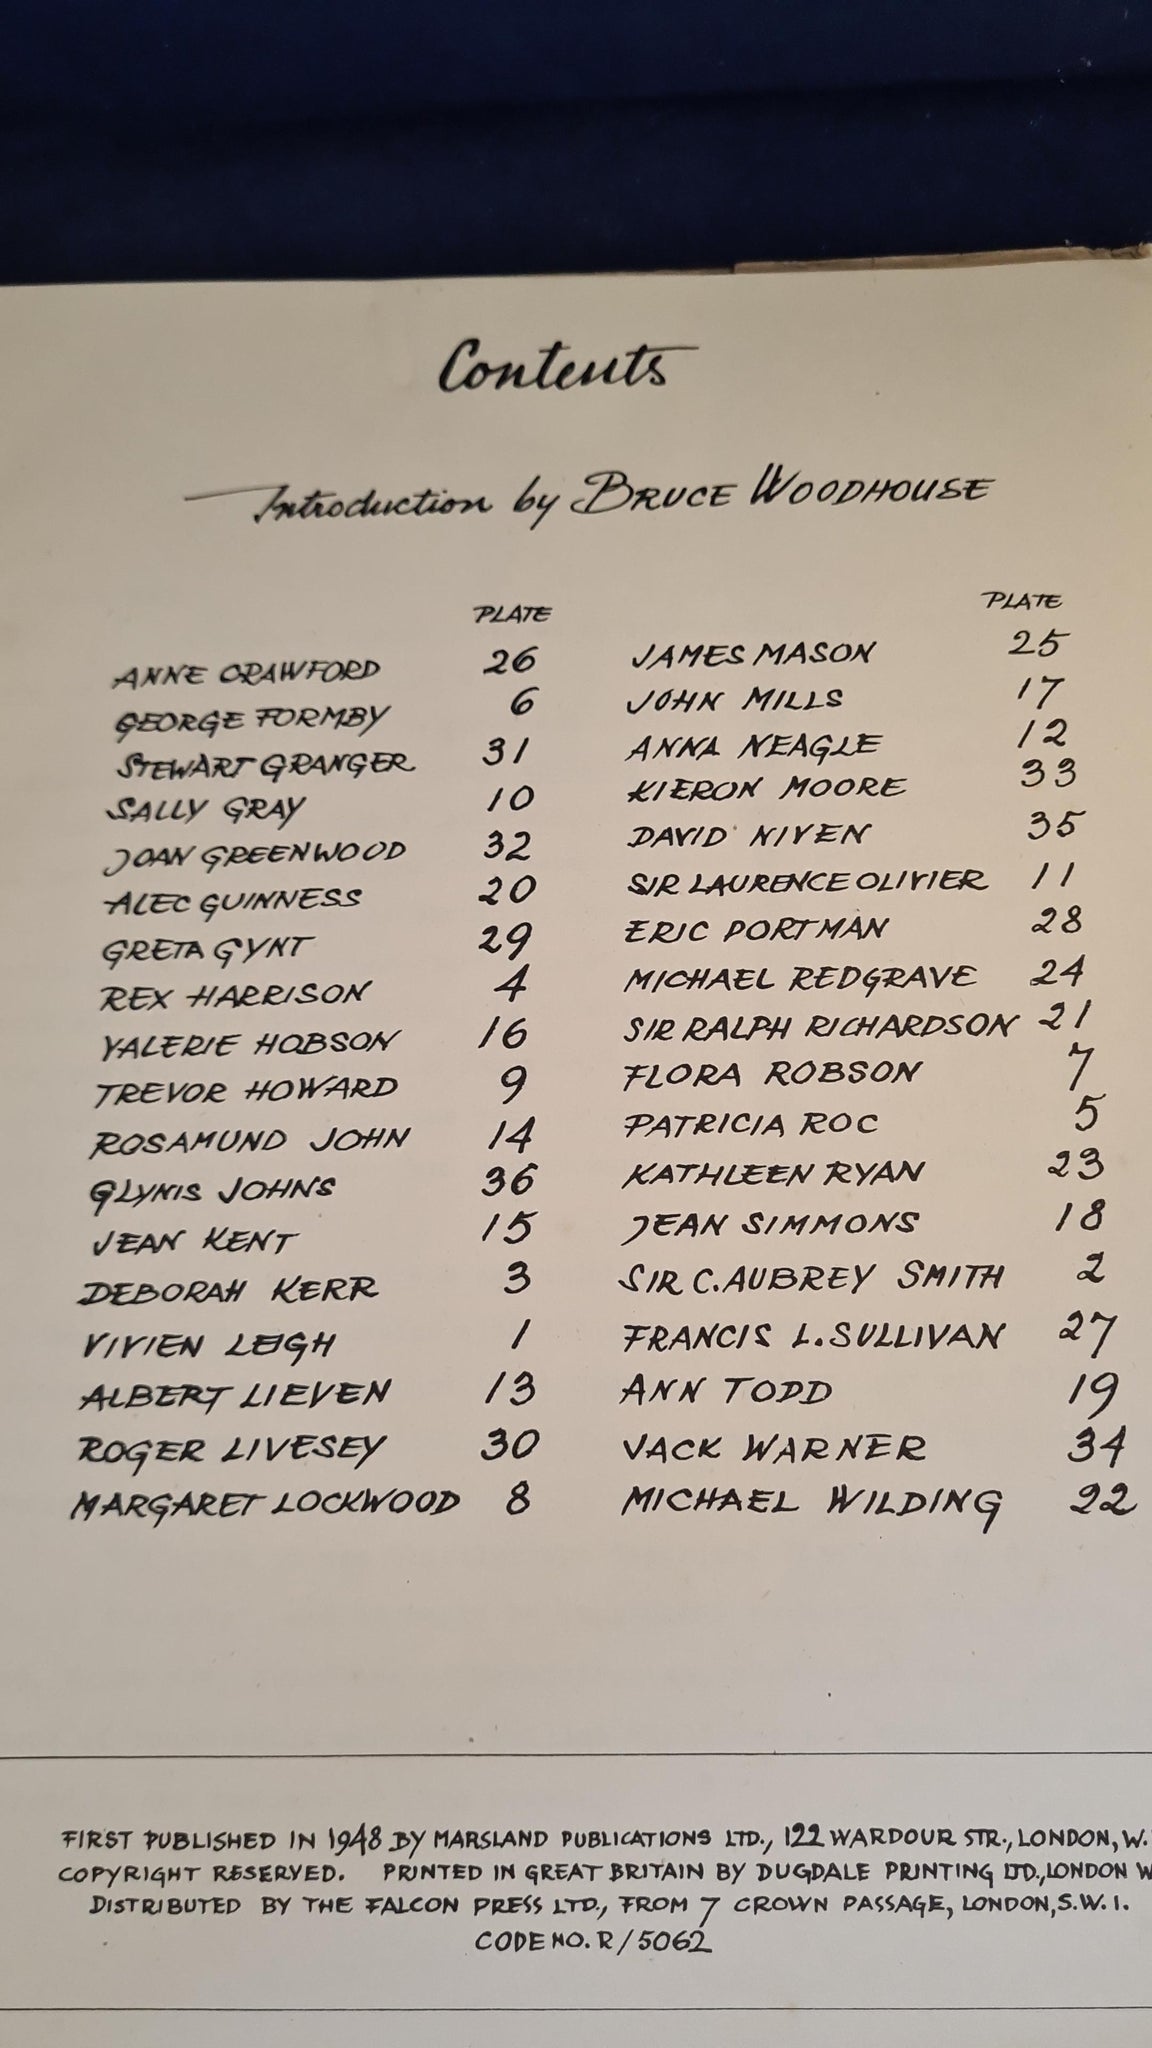 Contents
Introduction by BRUCE WOODHOUSE
PLATE
ANNE CRAWFORD 26
GEORGE FORMBY 6
STEWART GRANGER 31
SALLY GRAY 10
JOAN GREENWOOD 32
ALEC GUINNESS 20
GRETA GYNT 29
REX HARRISON 4
VALERIE HOBSON 16
TREVOR HOWARD 9
ROSAMUND JOHN 14
GLYNIS JOHNS 36
JEAN KENT 15
DEBORAH KERR 3
VIVIEN LEIGH 1
ALBERT LIEVEN 13
ROGER LIVESEY 30
MARGARET LOCKWOOD 8
PLATE
JAMES MASON 25
JOHN MILLS 17
ANNA NEAGLE 12
KIERON MOORE 33
DAVID NIVEN 35
SIR LAURENCE OLIVIER 11
ERIC PORTMAN 28
MICHAEL REDGRAVE 24
SIR RALPH RICHARDSON 21
FLORA ROBSON 7
PATRICIA ROC 5
KATHLEEN RYAN 23
JEAN SIMMONS 18
SIR C. AUBREY SMITH 2
FRANCIS L. SULLIVAN 27
ANN TODD 19
JACK WARNER 34
MICHAEL WILDING 22
FIRST PUBLISHED IN 1948 BY MARSLAND PUBLICATIONS LTD., 122 WARDOUR STR., LONDON, W.
COPYRIGHT RESERVED. PRINTED IN GREAT BRITAIN BY DUGDALE PRINTING LTD., LONDON W
DISTRIBUTED BY THE FALCON PRESS LTD., FROM 7 CROWN PASSAGE, LONDON, S.W.1.
CODE NO. R/5062